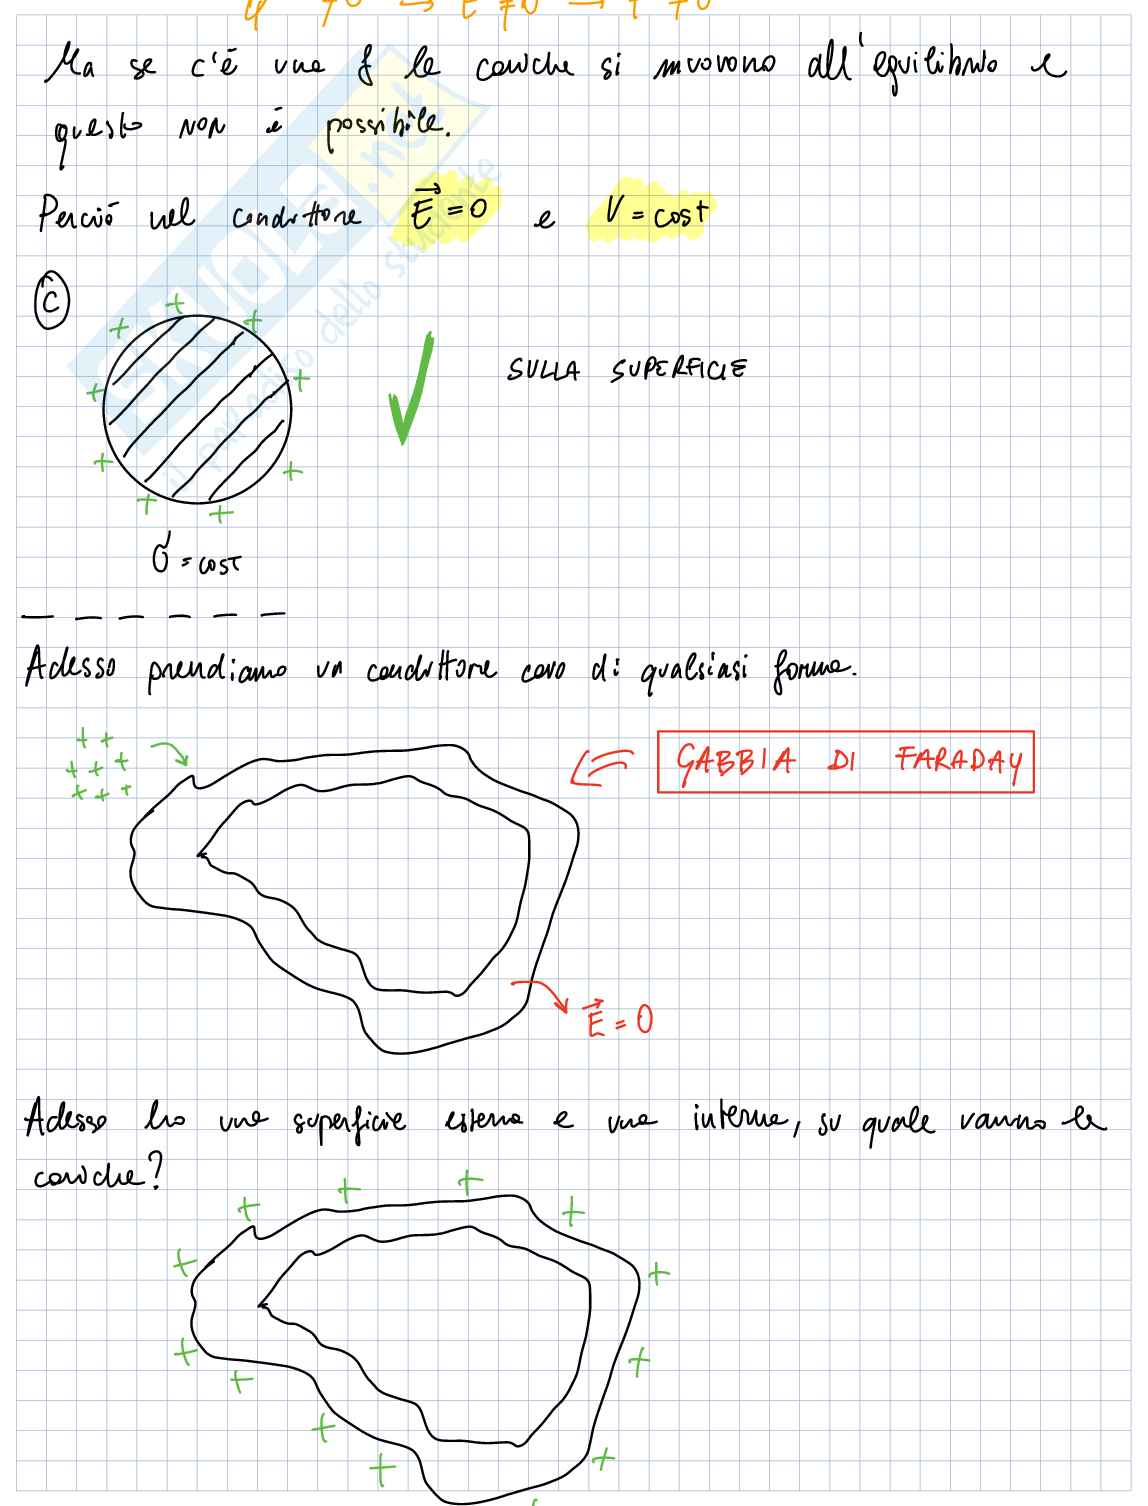 Ma se c'è una f le cariche si muovono all'equilibrio e
questo NON è possibile.
Perciò nel conduttore E⃗ = 0 e V = cost
C
SULLA SUPERFICIE
σ = cost
Adesso prendiamo un conduttore cavo di qualsiasi forma.
GABBIA DI FARADAY
E⃗ = 0
Adesso ho una superficie esterna e una interna, su quale vanno le
cariche?